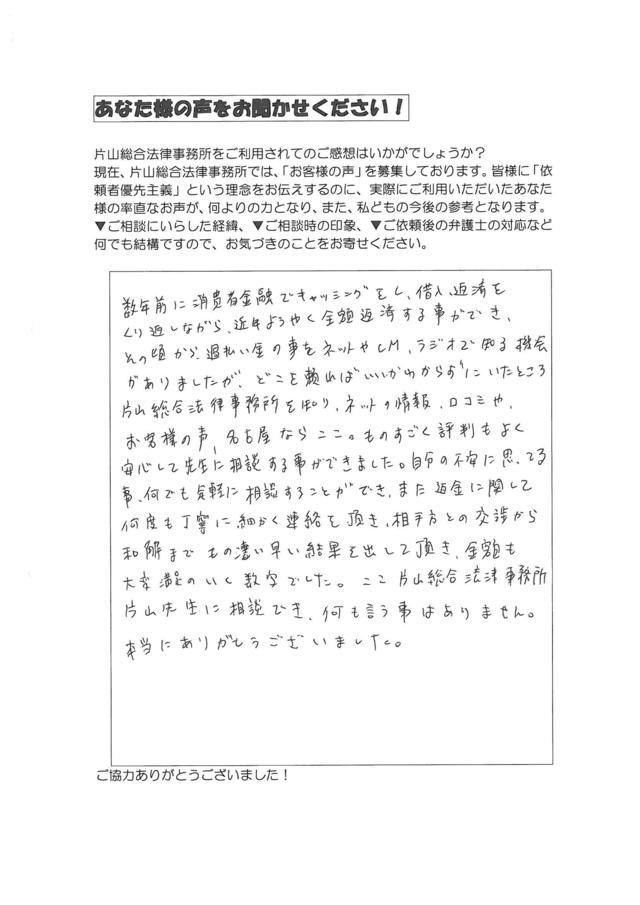 あなた様の声をお聞かせください！
片山総合法律事務所をご利用されてのご感想はいかがでしょうか？
現在、片山総合法律事務所では、「お客様の声」を募集しております。皆様に「依
頼者優先主義」という理念をお伝えするのに、実際にご利用いただいたあなた
様の率直なお声が、何よりの力となり、また、私どもの今後の参考となります。
▼ご相談にいらした経緯、▼ご相談時の印象、▼ご依頼後の弁護士の対応など
何でも結構ですので、お気づきのことをお寄せください。
数年前に消費者金融でキャッシングをし、借入、返済を
くり返しながら、近年ようやく全額返済する事ができ、
その頃から過払い金の事をネットやCM、ラジオで知る機会
がありましたが、どこを頼ればいいかわからずにいたところ
片山総合法律事務所を知り、ネットの情報、口コミや、
お客様の声、名古屋ならここ。ものすごく評判もよく
安心して先生に相談する事ができました。自分の不安に思ってる
事、何でも気軽に相談することができ、また返金に関して
何度も丁寧に細かく連絡を頂き、相手方との交渉から
和解までもの凄い早い結果を出して頂き、金額も
大変満足のいく数字でした。ここ片山総合法律事務所
片山先生に相談でき、何も言う事はありません。
本当にありがとうございました。
ご協力ありがとうございました！